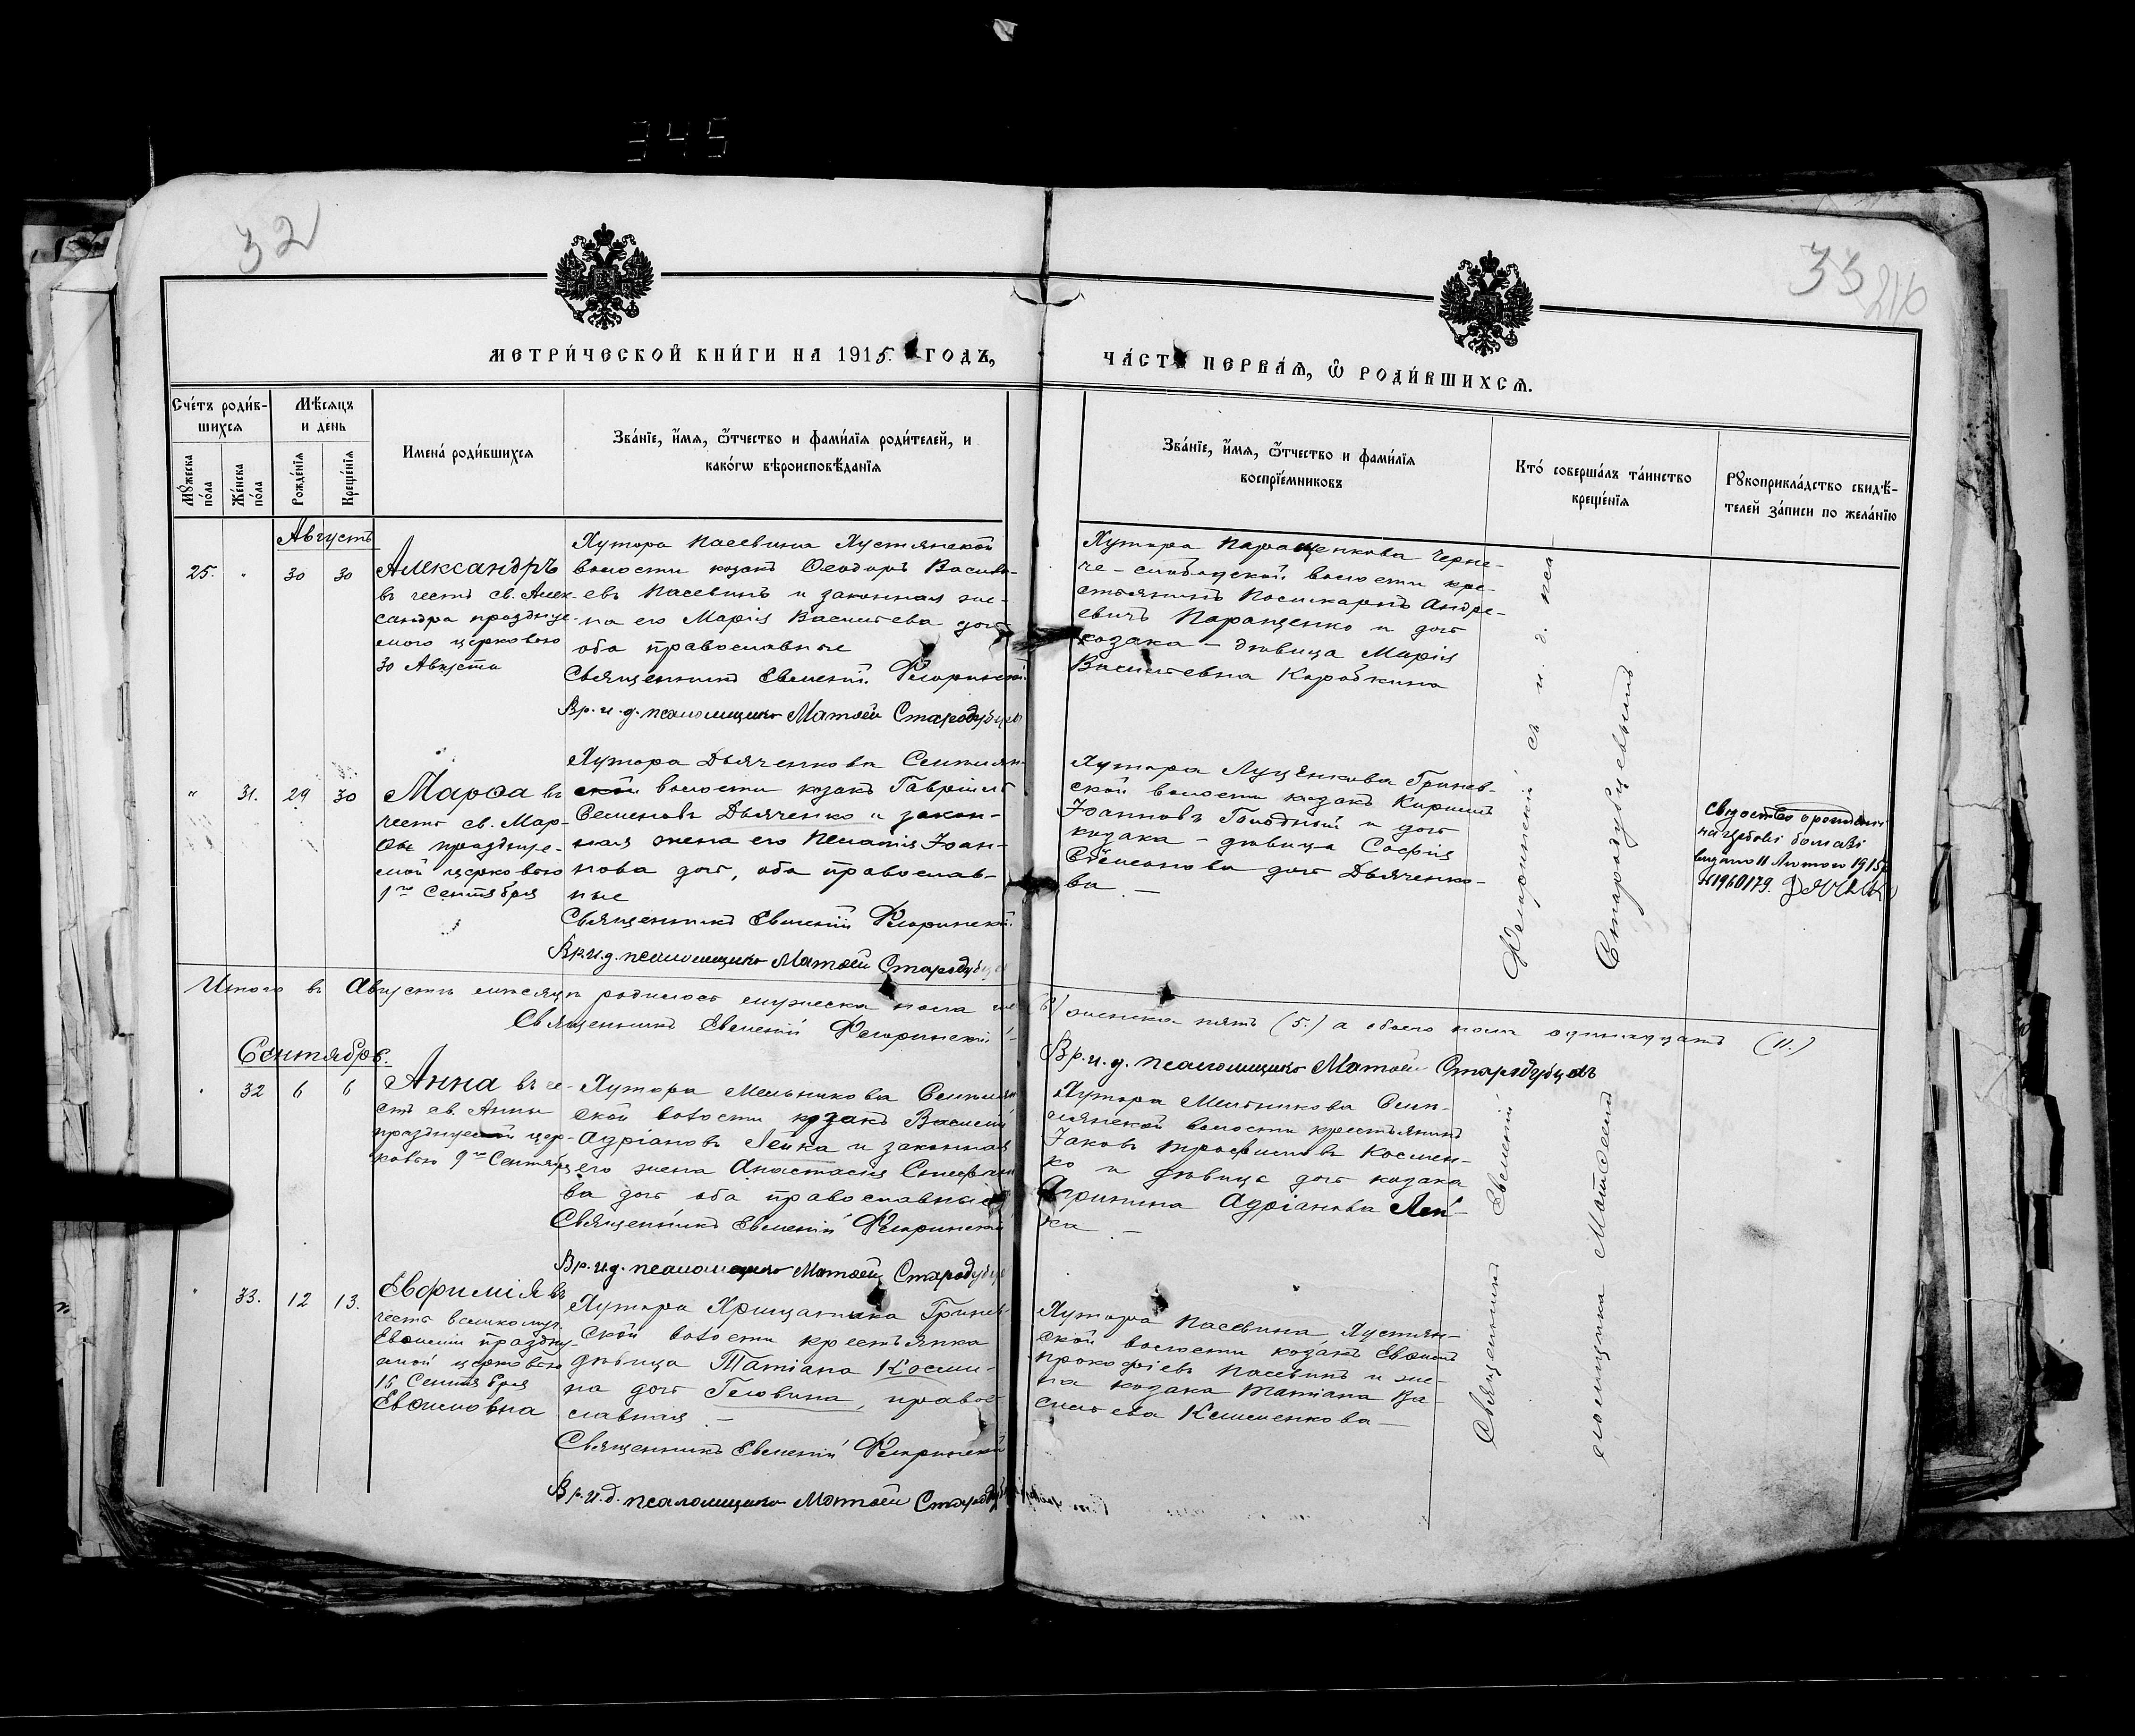 345
32
33
МЕТРИ́ЧЕСКОЙ КНИ́ГИ НА 1915. ГОДЪ,
ЧА́СТЬ ПЕРВАѦ, Ѽ РОДИ́ВШИХСѦ.
Сче́тъ роди́в-
шихсѧ
Мꙋ́жеска по́ла
Же́нска по́ла
Мѣ́сѧцъ
и день
Рожде́нїѧ
Креще́нїѧ
Имена̀ роди́вшихсѧ
Зва́нїе, и́мѧ, ѻ҆́тчество и фами́лїѧ роди́телей, и
како́гѡ вѣроисповѣ́данїѧ
Зва́нїе, и́мѧ, ѻ҆́тчество и фами́лїѧ
воспрїе́мниковъ
Кто̀ соверша́лъ та́инство
креще́нїѧ
Рꙋкоприкла́дство свидѣ́-
телей за́писи по жела́нїю
Августъ
25. " 30 30
Александръ
въ честь св. Алек-
сандра празднуе-
маго церковью
30 Августа
Хутора Пасевина Хустянской
волости козакъ Ѳеодоръ Василь-
евъ Пасевинъ и законная же-
на его Марія Васильева дочь
оба православные
Священникъ Евменій Флоринскій
Вр. и. д. псаломщика Матѳей Стародубцевъ
Хутора Паращенкова Черне-
че-слободской волости кре-
стьянинъ Поликарпъ Андре-
евичъ Паращенко и дочь
козака – дѣвица Марія
Васильевна Коробкина
" 31. 29 30
Марѳа въ
честь св. Мар-
ѳы праздную-
мой церковью
1го Сентября
Хутора Дьяченкова Смилян-
ской волости козакъ Гавріилъ
Семеновъ Дьяченко и закон-
ная жена его Пелагія Іоан-
нова дочь, оба православ-
ные
Священникъ Евменій Флоринскій.
Вр. и. д. псаломщика Матѳей Стародубцевъ
Хутора Луценкова Гринев-
ской волости козакъ Кириллъ
Іоанновъ Голодный и дочь
козака – дѣвица Софія
Семенова дочь Дьяченко-
ва. –
видано 11
№1960179.
Итого въ Августѣ мѣсяцѣ родилось мужеска пола
женска пять (5.) а обоего пола одиннадцать (11.)
Священникъ Евменій Флоринскій
Вр. и. д. псаломщика Матѳей Стародубцевъ
Сентябрь.
32 6 6
Анна въ че-
сть св. Анны
празднуемой цер-
ковью 9го Сентября
Хутора Мельникова Смилян
ской волости козакъ Василій
Адріановъ Лейка и законная
его жена Анастасія Стефано
ва дочь оба православные
Священникъ Евменій Флоринскій
Вр. и. д. псаломщика Матѳей Стародубцевъ
Хутора Мельникова Смил-
янской волости крестьянинъ
Іаковъ Трофимовъ Космен-
ко и дѣвица дочь козака
Агрипина Адріанова Лей-
ка –
33. 12 13.
Евфимія въ
честь великомуч.
Евѳиміи праздну-
емой церковью
16 Сентября
Евѳимовна
Хутора Хрищатика Гринев-
ской волости крестьянка
дѣвица Татіана Косми-
на дочь Головина, право-
славная. –
Священникъ Евменій Флоринскій
Вр. и. д. псаломщика Матѳей Стародубцевъ
Хутора Пасевина Хустян-
ской волости козакъ Евѳимъ
Прокофіевъ Пасевинъ и же-
на козака Татіана Ва-
сильева Клименкова –
Священникъ Евменій Флоринскій съ и. д. пса
ломщика Матѳеемъ Стародубцевымъ